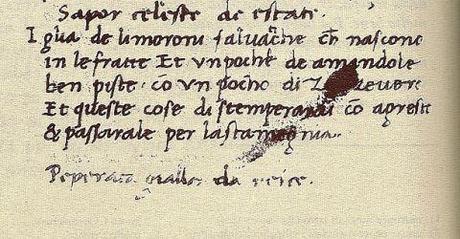 Sapor celeste de estate.
I glia de li moroni saluatiche ch̄ nascono
in le fratte Et vn poche de amandole
ben piste. cō vn pocho di
Et queste cose distemperarai cō agresto
& passarale per lastamegnia.
Peperata gialla da